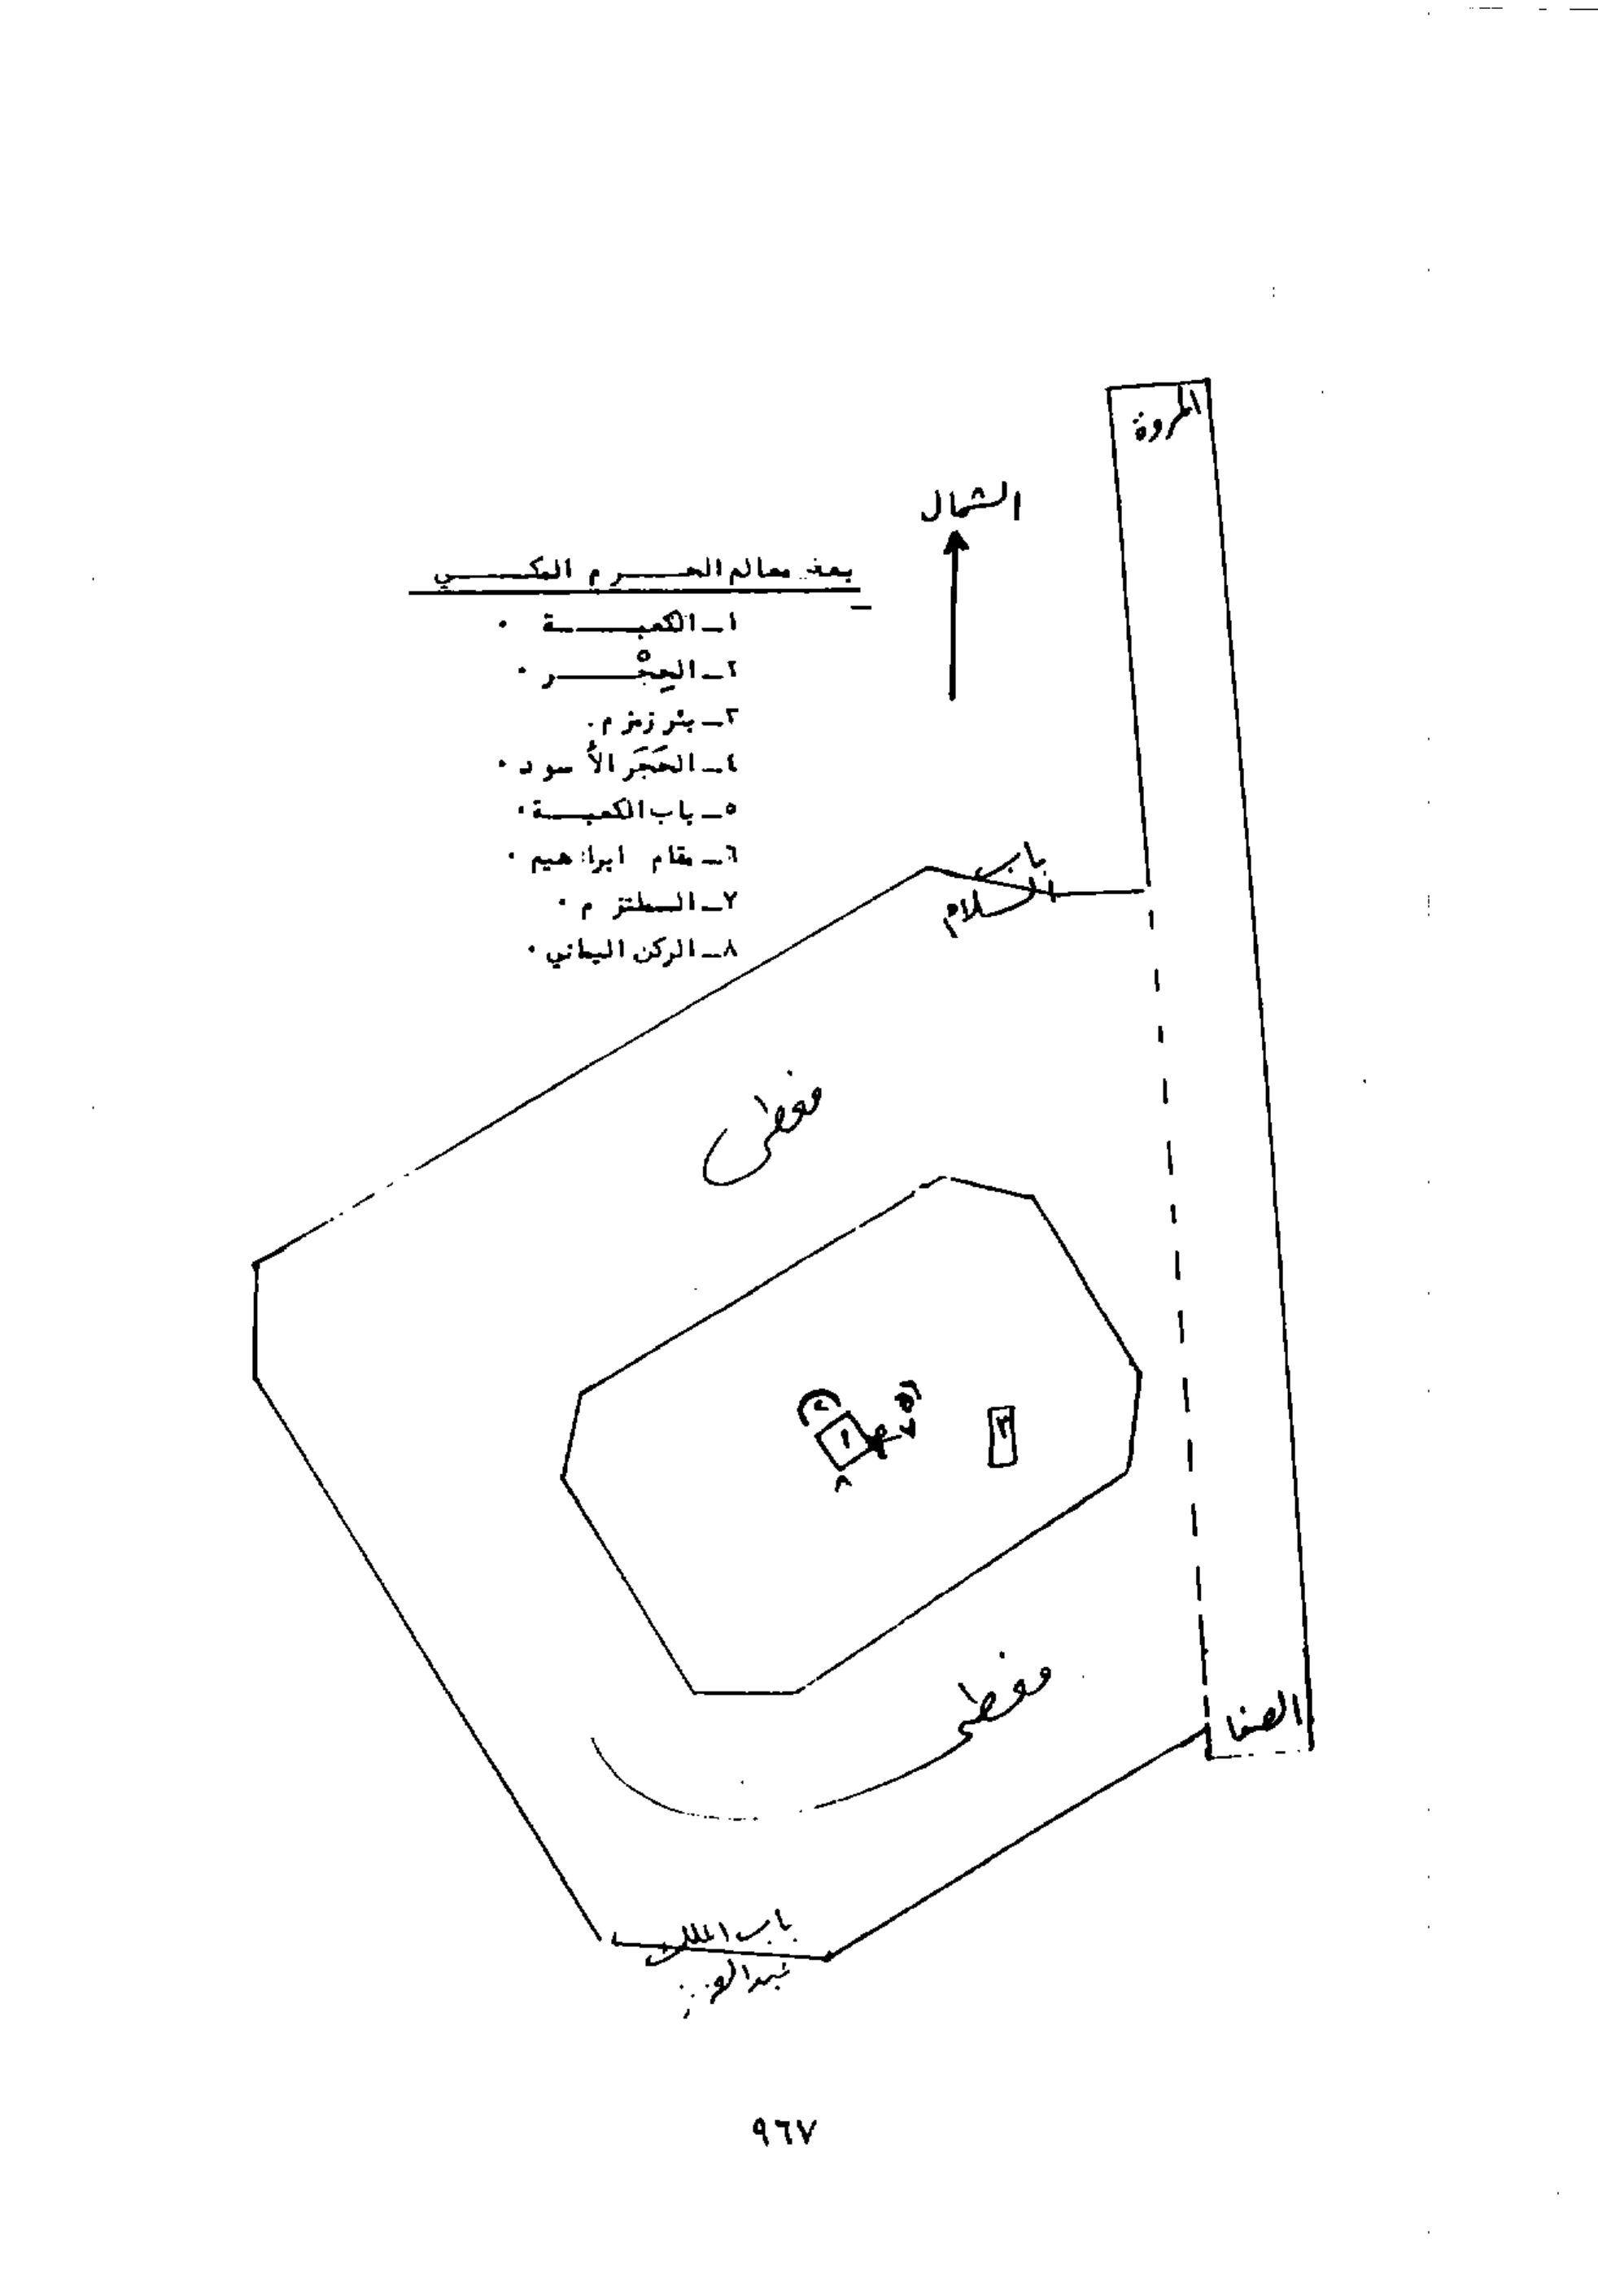 المروة
الشمال
بعض معالم الحرم المكي
١ـ الكعبة .
٢ـ الحِجْر .
٣ـ بئر زمزم .
٤ـ الحَجَر الأسود .
٥ـ باب الكعبة .
٦ـ مقام ابراهيم .
٧ـ الملتزم .
٨ـ الركن اليماني .
باب
السلام
مغطى
٢
١
٣
٧
٨
مغطى
الصفا
باب الملك
عبدالعزيز
٩٦٧